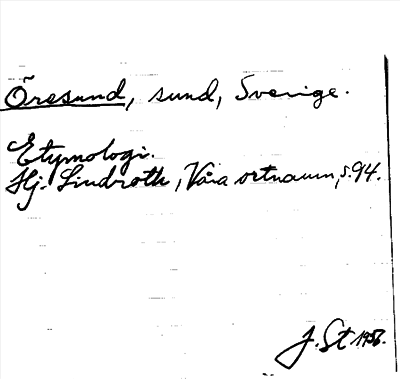 Öresund, sund, Sverige.
Etymologi.
Hj. Lindroth, Våra ortnamn, s. 94.
J. St 1956.